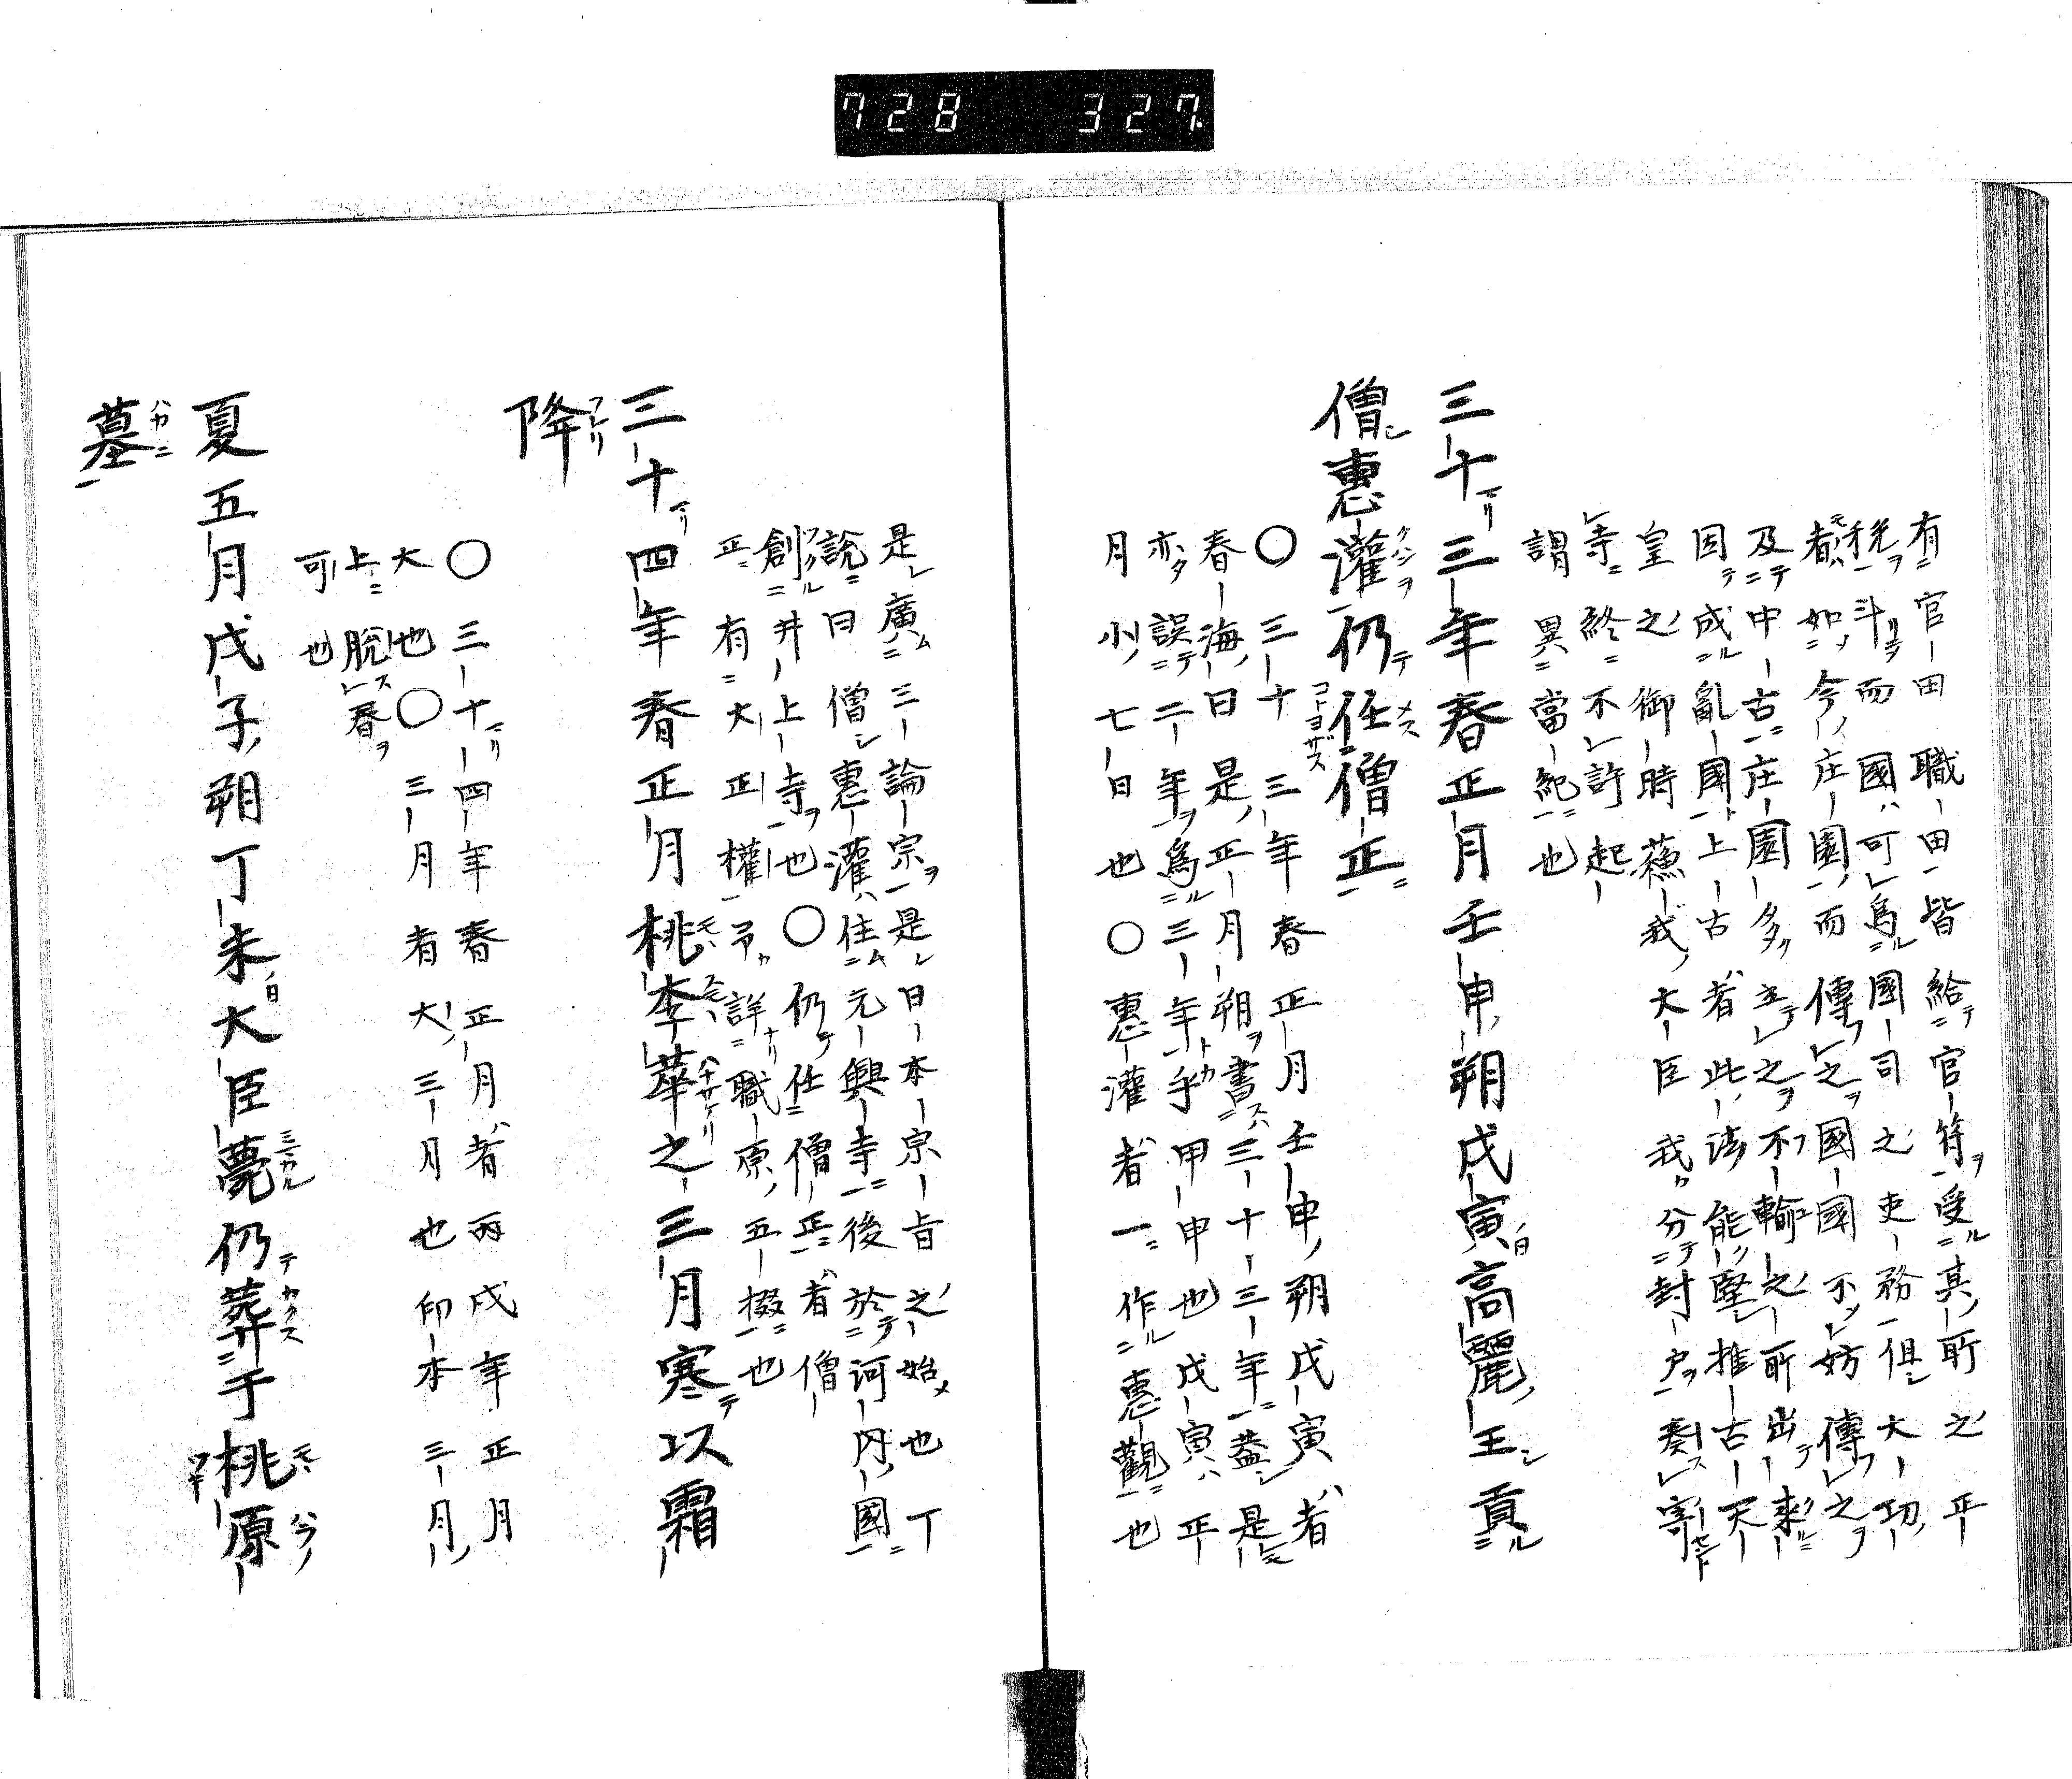 728 327.
有官田職田皆給官符受其所之正
税斗而國可為國司之吏務但大功
者如今庄園而傳之國國不妨傳之
及中古庄園多立之不輸之所出來
因成亂國上古者此法能堅推古天
皇之御時蘓我大臣我分封戸奏寄
寺終不許起
謂異當紀也
三十三年春正月壬申朔戊寅高麗王貢
僧惠灌仍任僧正
○三十三年春正月壬申朔戊寅者
春海曰是正月朔書三十三年蓋是
亦誤二年為三年乎甲申也戊寅正
月小七日也○惠灌者一作惠觀也
是廣三論宗是日本宗旨之始也丁
説曰僧惠灌住元興寺後於河内國
創井上寺也○仍任僧正者僧
正有大正權予詳職原五掇也
三十四年春正月桃李華之三月寒以霜
降
○三十四年春正月者丙戌年正月
大也○三月者大三月也印本三月
上脱春
可也
夏五月戊子朔丁未大臣薨仍葬于桃原
墓